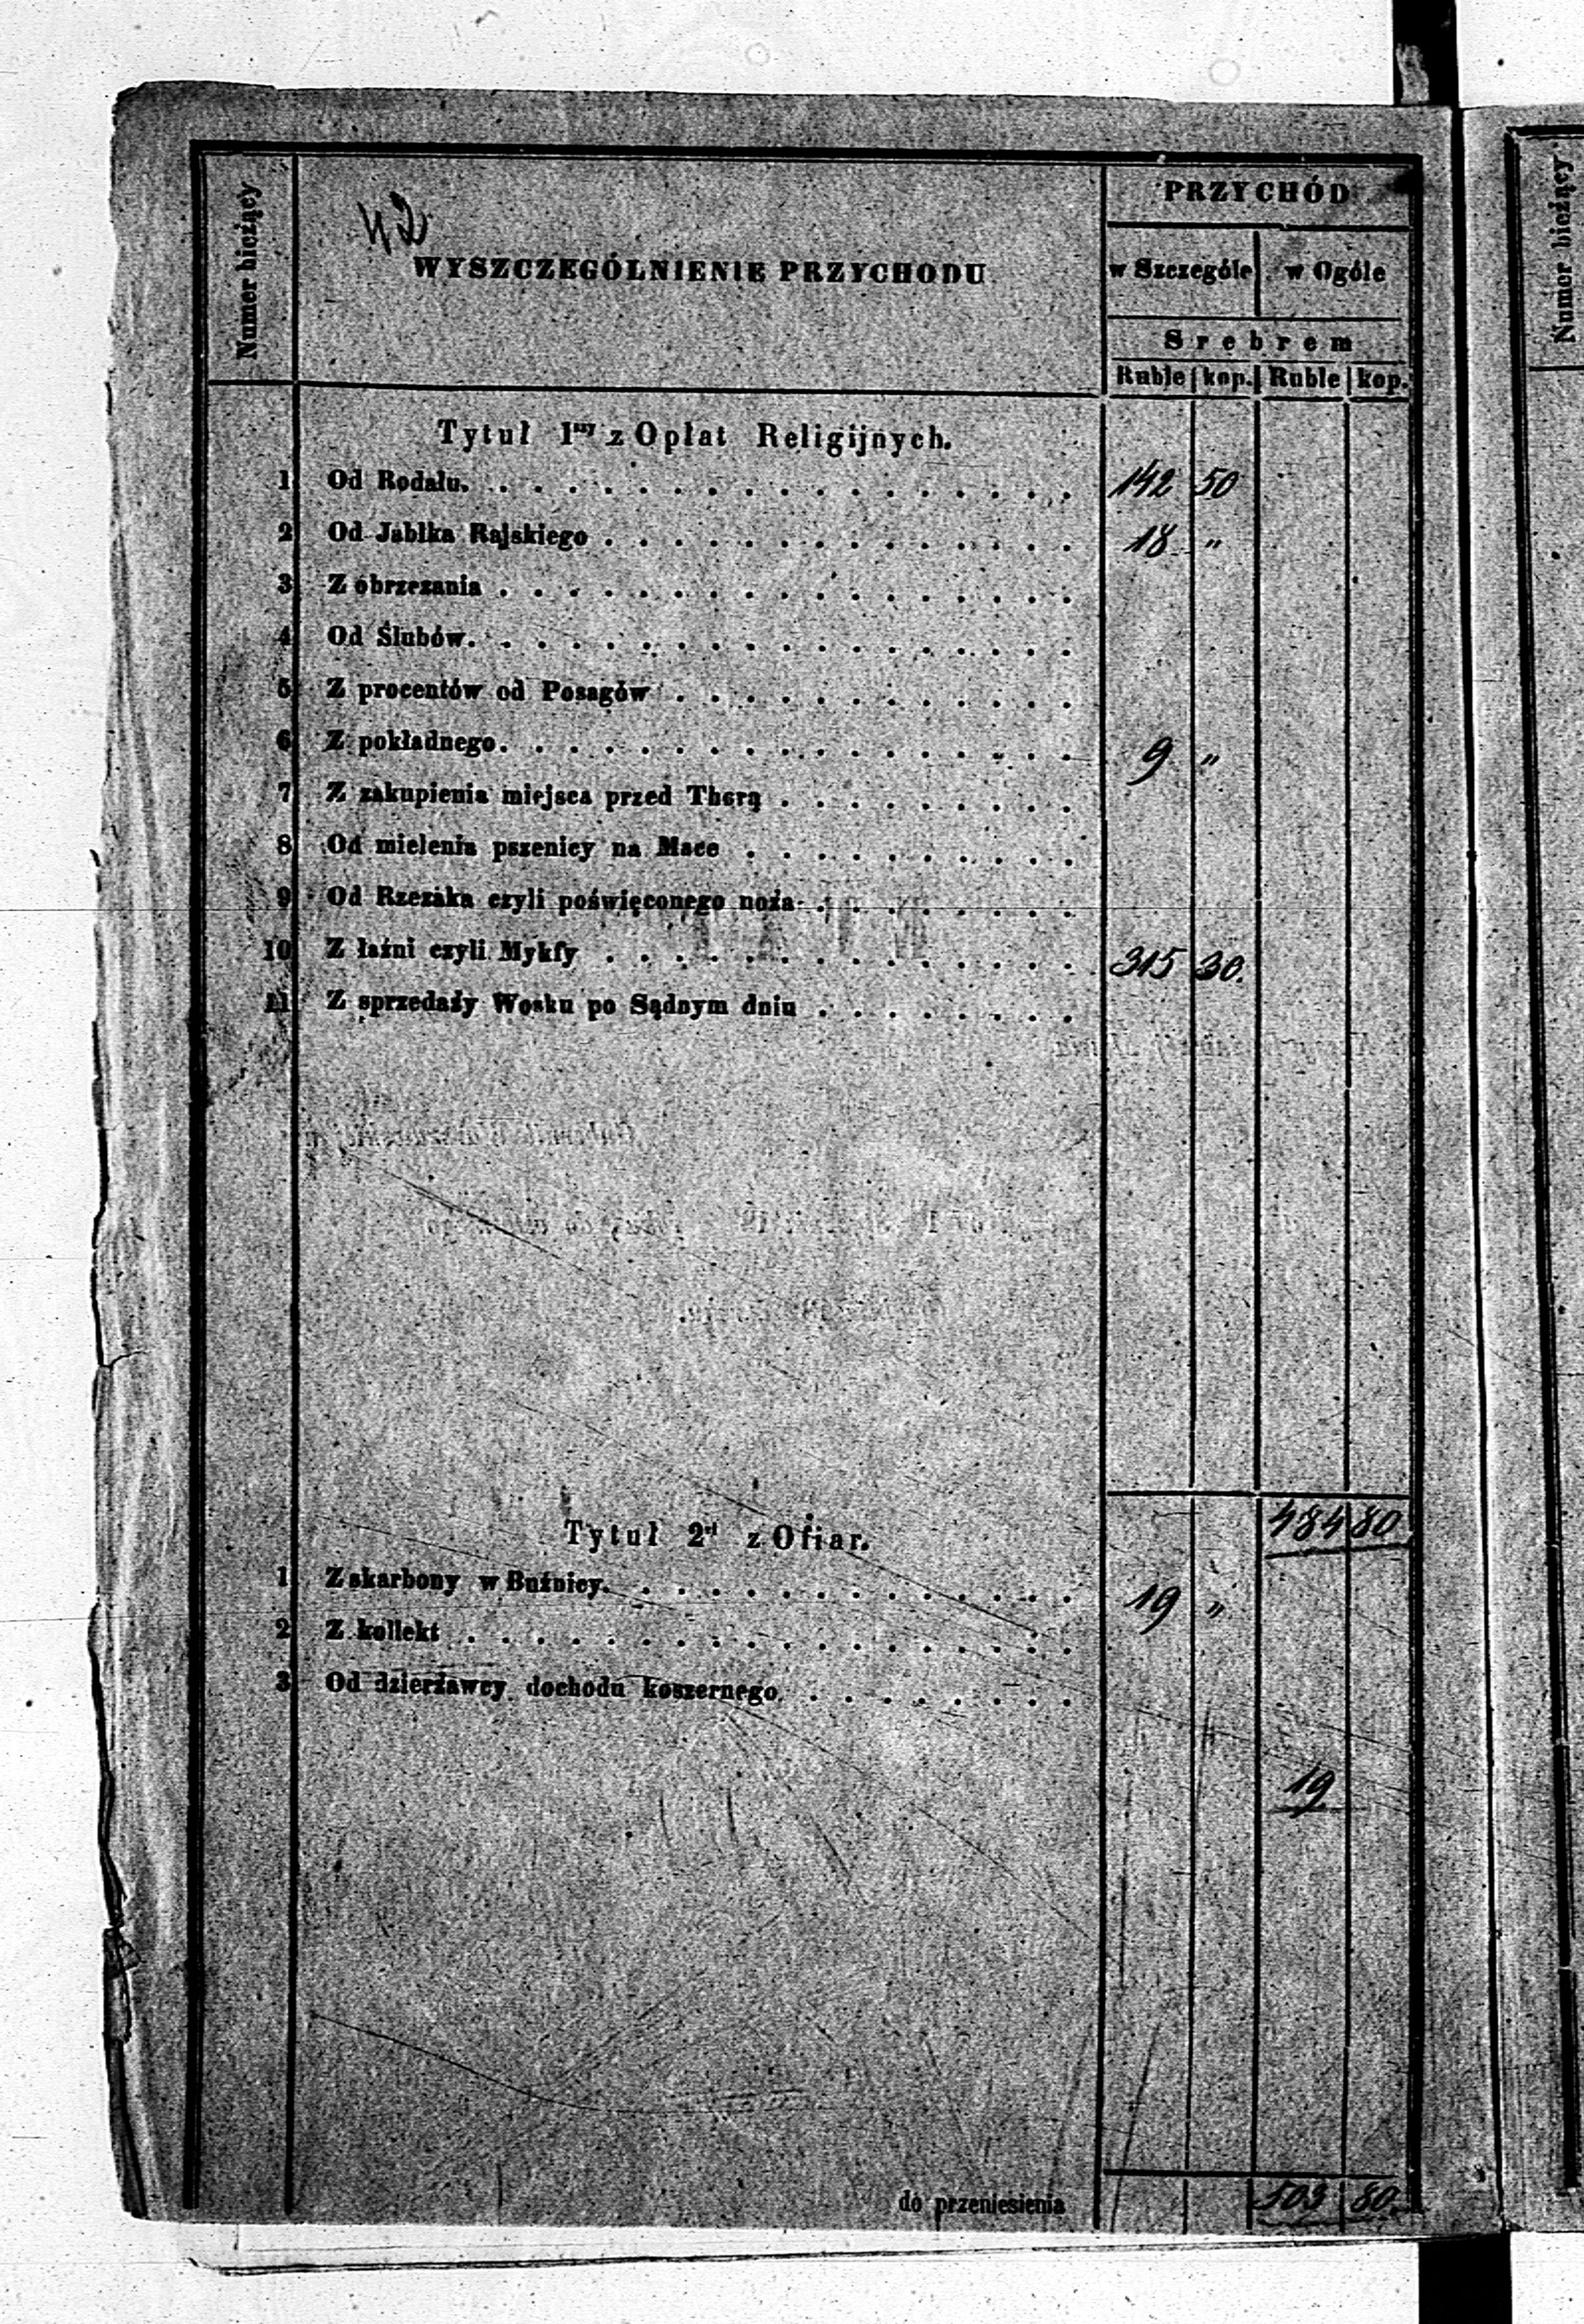 42
Numer bieżący
WYSZCZEGÓLNIENIE PRZYCHODU
PRZYCHÓD
w Szczególe w Ogóle
Srebrem
Ruble kop. Ruble kop.
Tytuł 1szy z Opłat Religijnych.
1 Od Rodału. 142 50
2 Od Jabłka Rajskiego 18 "
3 Z obrzezania
4 Od Ślubów.
5 Z procentów od Posagów
6 Z pokładnego. 9 "
7 Z zakupienia miejsca przed Thorą
8 Od mielenia pszenicy na Mace
9 Od Rzezaka czyli poświęconego noża
10 Z łaźni czyli Mykfy 315 30.
11 Z sprzedaży Wosku po Sądnym dniu
484 80
Tytuł 2gi z Ofiar.
1 Z skarbony w Buźnicy. 19 "
2 Z kollekt
3 Od dzierżawcy dochodu koszernego
19
do przeniesienia 503 80.
Numer bieżący